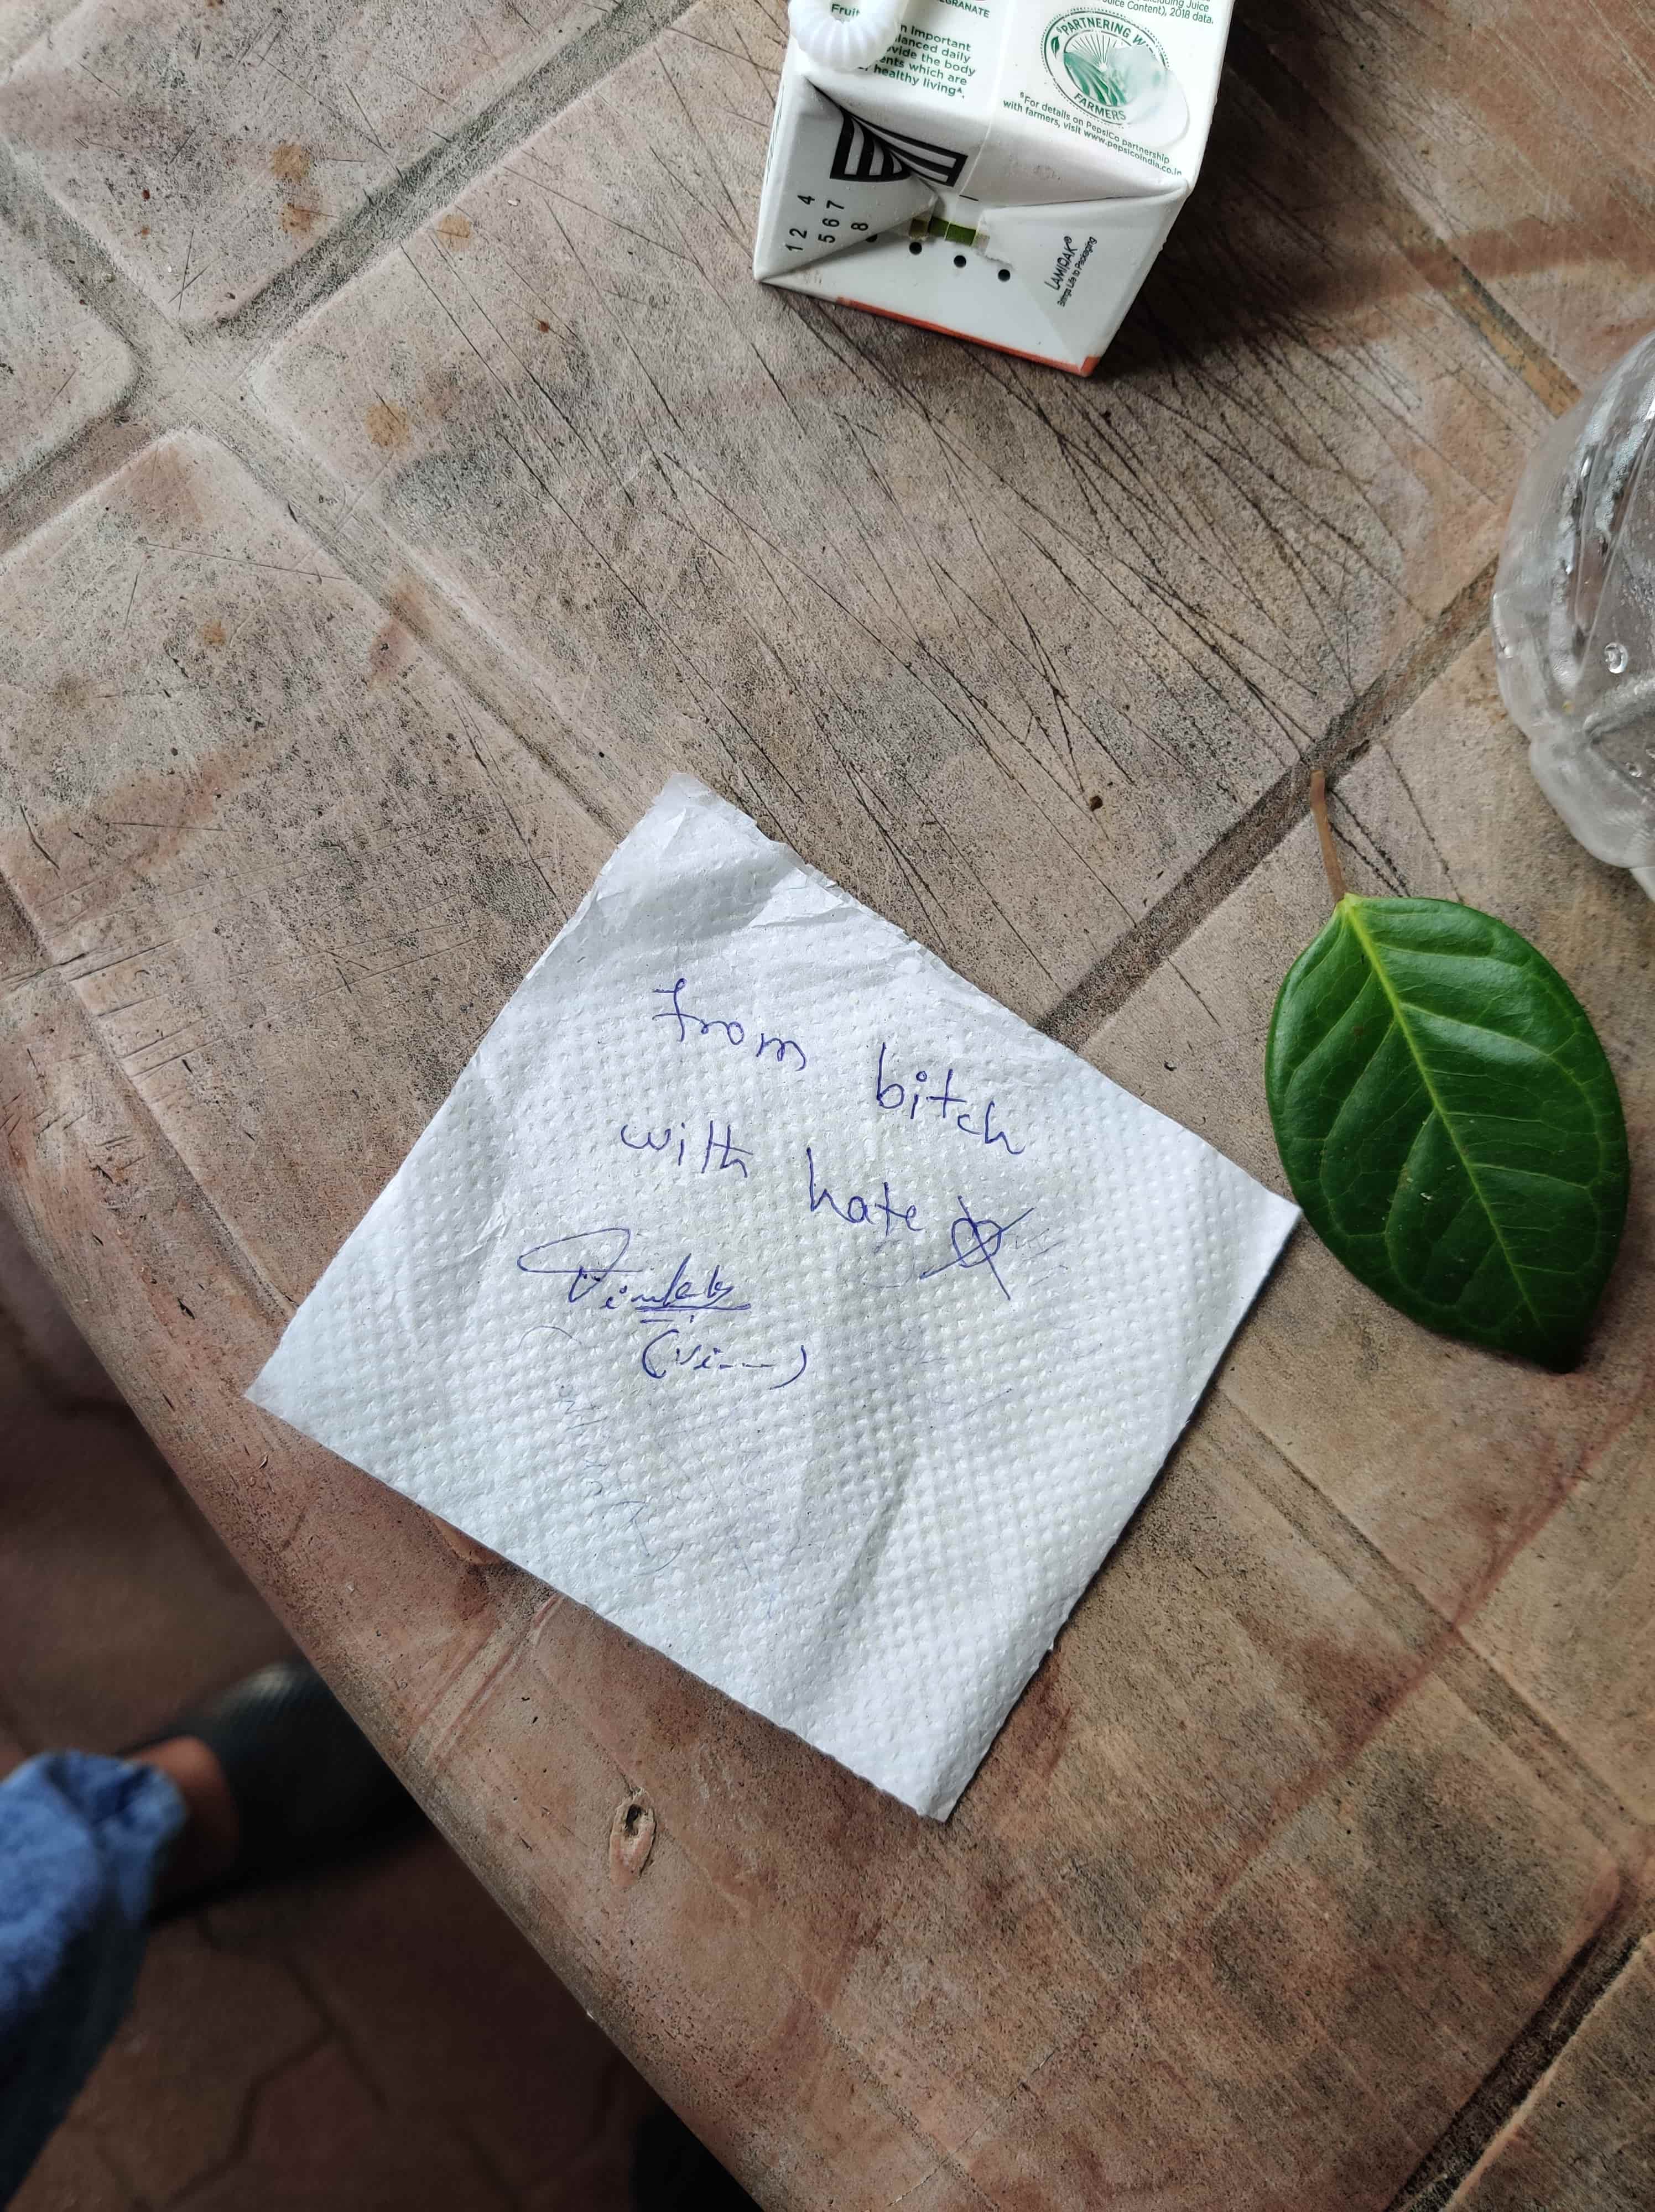 EGRANATE
Fruit
n important
lanced daily
vide the body
ents which are
healthy living^.
xcluding Juice
Juice Content), 2018 data.
PARTNERING W
FARMERS
$For details on PepsiCo partnership
with farmers, visit www.pepsicoindia.co.in
1 2 4
5 6 7
8
LAMIPAK®
Brings Life to Packaging
from bitch
with hate
(Vi---)